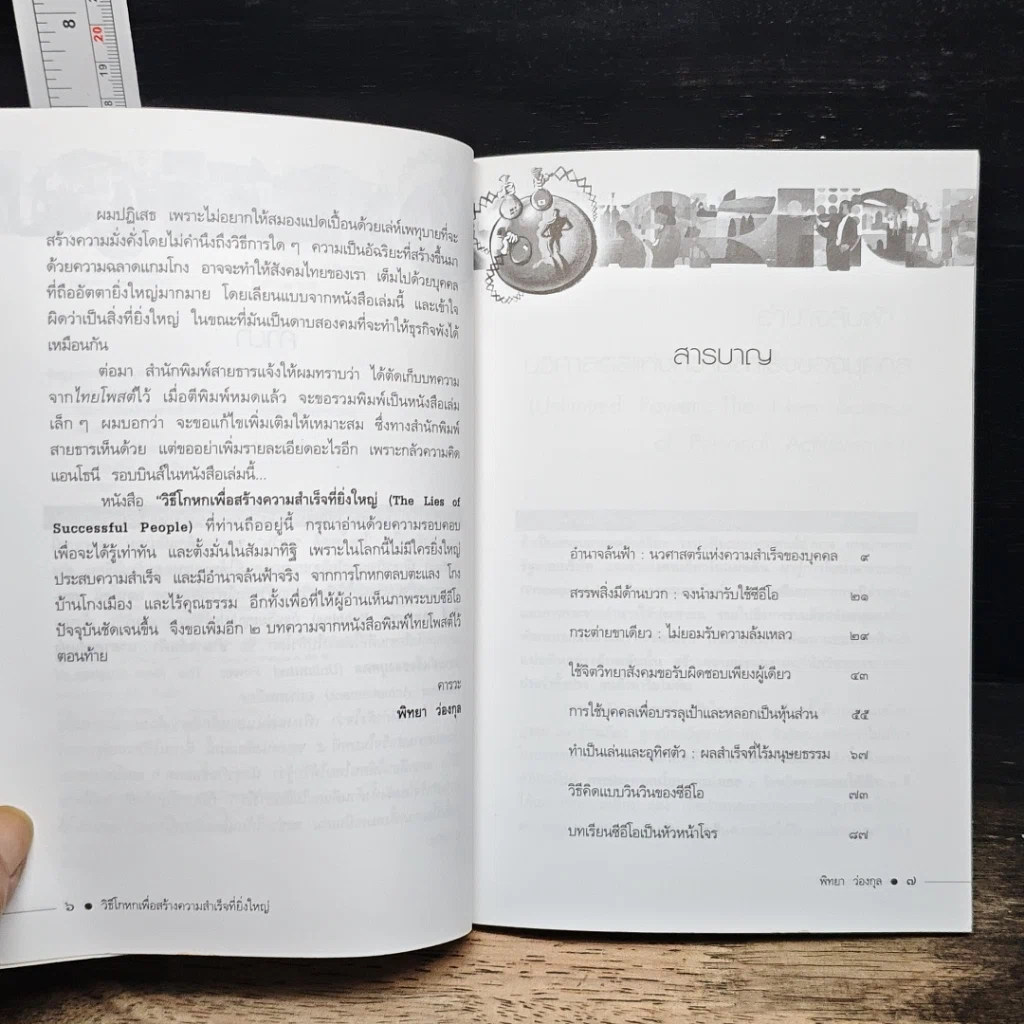 8
20
19
18
ผมปฏิเสธ เพราะไม่อยากให้สมองแปดเปื้อนด้วยเล่ห์เพทุบายที่จะ
สร้างความมั่งคั่งโดยไม่คำนึงถึงวิธีการใด ๆ ความเป็นอัจฉริยะที่สร้างขึ้นมา
ด้วยความฉลาดแกมโกง อาจจะทำให้สังคมไทยของเรา เต็มไปด้วยบุคคล
ที่ถืออัตตายิ่งใหญ่มากมาย โดยเลียนแบบจากหนังสือเล่มนี้ และเข้าใจ
ผิดว่าเป็นสิ่งที่ยิ่งใหญ่ ในขณะที่มันเป็นดาบสองคมที่จะทำให้ธุรกิจพังได้
เหมือนกัน
ต่อมา สำนักพิมพ์สายธารแจ้งให้ผมทราบว่า ได้ตัดเก็บบทความ
จากไทยโพสต์ไว้ เมื่อตีพิมพ์หมดแล้ว จะขอรวมพิมพ์เป็นหนังสือเล่ม
เล็ก ๆ ผมบอกว่า จะขอแก้ไขเพิ่มเติมให้เหมาะสม ซึ่งทางสำนักพิมพ์
สายธารเห็นด้วย แต่ขออย่าเพิ่มรายละเอียดอะไรอีก เพราะกลัวความคิด
แอนโธนี รอบบินส์ในหนังสือเล่มนี้...
หนังสือ "วิธีโกหกเพื่อสร้างความสำเร็จที่ยิ่งใหญ่ (The Lies of
Successful People) ที่ท่านถืออยู่นี้ กรุณาอ่านด้วยความรอบคอบ
เพื่อจะได้รู้เท่าทัน และตั้งมั่นในสัมมาทิฐิ เพราะในโลกนี้ไม่มีใครยิ่งใหญ่
ประสบความสำเร็จ และมีอำนาจล้นฟ้าจริง จากการโกหกตลบตะแลง โกง
บ้านโกงเมือง และไร้คุณธรรม อีกทั้งเพื่อที่ให้ผู้อ่านเห็นภาพระบบซีอีโอ
ปัจจุบันชัดเจนขึ้น จึงขอเพิ่มอีก ๒ บทความจากหนังสือพิมพ์ไทยโพสต์ไว้
ตอนท้าย
คารวะ
พิทยา ว่องกุล
๖ ● วิธีโกหกเพื่อสร้างความสำเร็จที่ยิ่งใหญ่
สารบาญ
อำนาจล้นฟ้า : นวศาสตร์แห่งความสำเร็จของบุคคล ๙
สรรพสิ่งมีด้านบวก : จงนำมารับใช้ซีอีโอ ๒๑
กระต่ายขาเดียว : ไม่ยอมรับความล้มเหลว ๒๙
ใช้จิตวิทยาสังคมขอรับผิดชอบเพียงผู้เดียว ๔๓
การใช้บุคคลเพื่อบรรลุเป้าและหลอกเป็นหุ้นส่วน ๕๕
ทำเป็นเล่นและอุทิศตัว : ผลสำเร็จที่ไร้มนุษยธรรม ๖๗
วิธีคิดแบบวินวินของซีอีโอ ๗๓
บทเรียนซีอีโอเป็นหัวหน้าโจร ๘๗
พิทยา ว่องกุล ● ๗